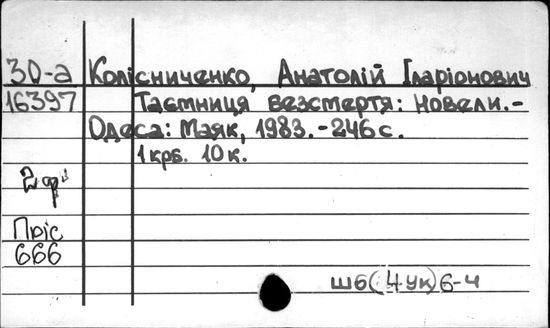 30-а Колісниченко, Анатолій Іларіонович
16397 Таємниця безсмертя: Новели.-
Одеса: Маяк, 1983.-246 с.
1 крб. 10 к.
2 ф
Пріс
666
Ш6(4Ук)6-4